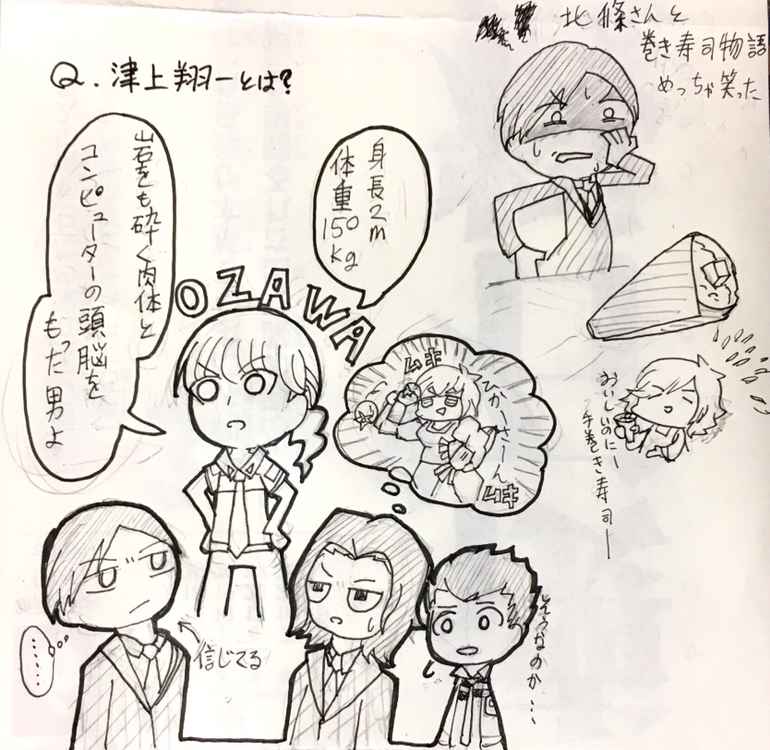 北條さんと
巻き寿司物語
めっちゃ笑った
Q.津上翔一とは?
身長2m
体重150kg
岩をも砕く肉体と
コンピューターの頭脳を
もった男よ
OZAWA
ムキ
ひかわさーん
ムキ
おいしいのにー
手巻き寿司ー
そうなのか…
信じてる
……